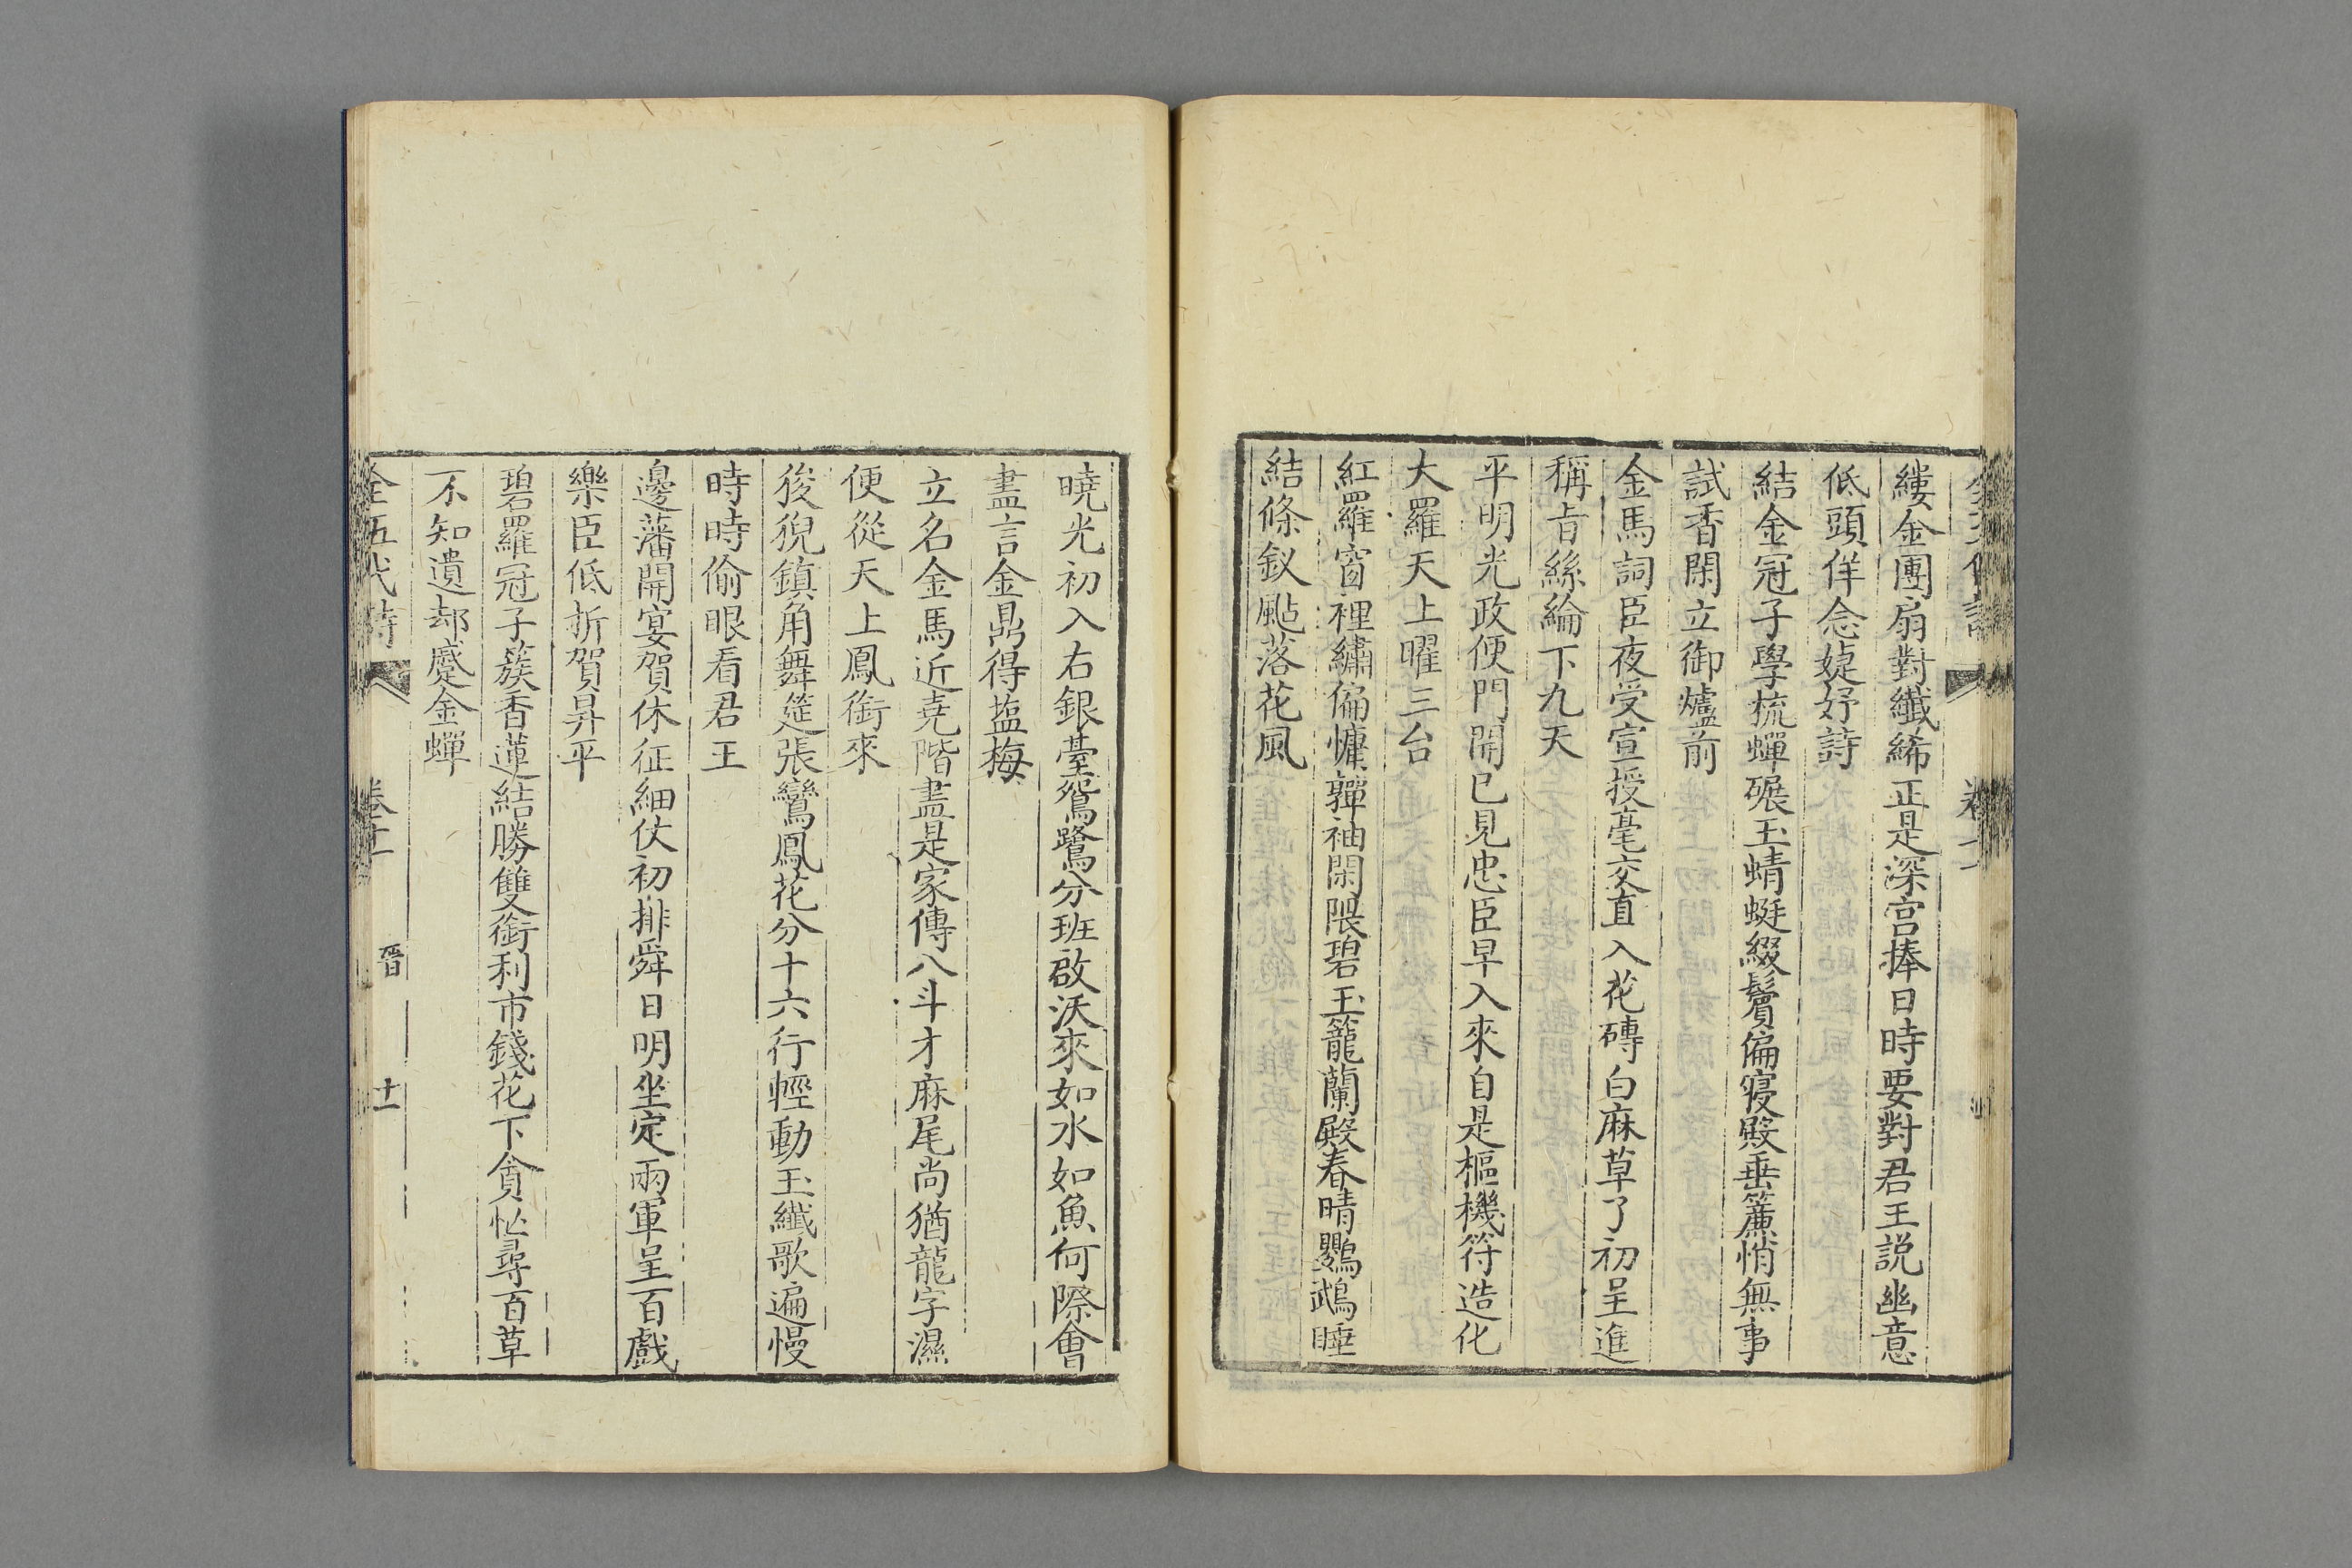 縷金團扇對纖絺正是深宫捧日時要對君王説幽意
低頭佯念婕妤詩
結金冠子學梳蟬碾玉蜻蜓綴鬢偏寢殿垂簾悄無事
試香閑立御爐前
金馬詞臣夜受宣授毫交直入花磚白麻草了初呈進
稱旨絲綸下九天
平明光政便門開已見忠臣早入來自是樞機符造化
大羅天上曜三台
紅羅窗裡繡偏慵嚲袖閑隈碧玉籠蘭殿春晴鸚鵡睡
結條釵颭落花風
曉光初入右銀臺鴛鷺分班啟沃來如水如魚何際會
盡言金鼎得塩梅
立名金馬近堯階盡是家傳八斗才麻尾尚猶龍字濕
便從天上鳳銜來
狻猊鎮角舞筵張鸞鳳花分十六行輕動玉纖歌遍慢
時時偷眼看君王
邊藩開宴賀休征細仗初排舜日明坐定兩軍呈百戲
樂臣低折賀昇平
碧羅冠子簇香蓮結勝雙銜利市錢花下貪忙尋百草
不知遺却蹙金蟬
全五代詩 卷十一 晉 十一